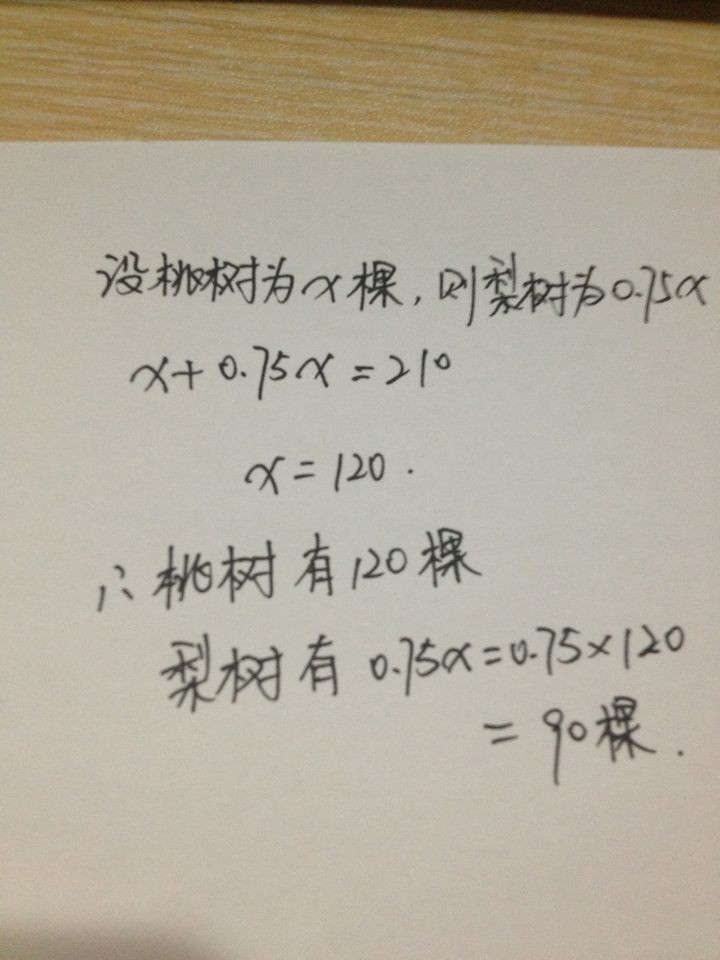 设桃树为x棵,则梨树为0.75x
x+0.75x=210
x=120.
∴桃树有120棵
梨树有0.75x=0.75×120
=90棵.